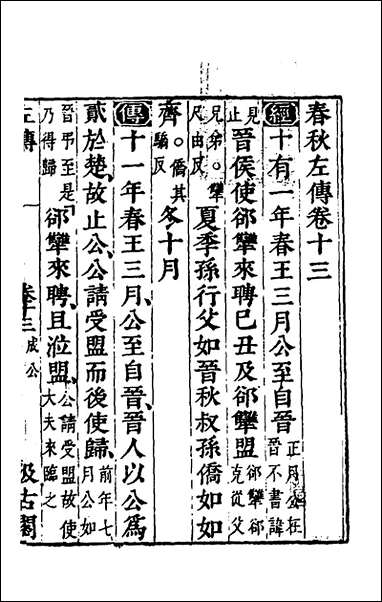 春秋左傳卷十三
經十有一年春王三月公至自晉正月公在晉不書諱
見止晉侯使郤犫來聘巳丑及郤犫盟郤犫郤克從父
兄弟。犫尺由反夏季孫行父如晉秋叔孫僑如如
齊。僑其驕反冬十月
傳十一年春王三月公至自晉晉人以公為
貳於楚故止公公請受盟而後使歸前年七月公如
晉弔至是乃得歸郤犫來聘且涖盟公請受盟故使大夫來臨之
左傳 卷十三 成公 汲古閣